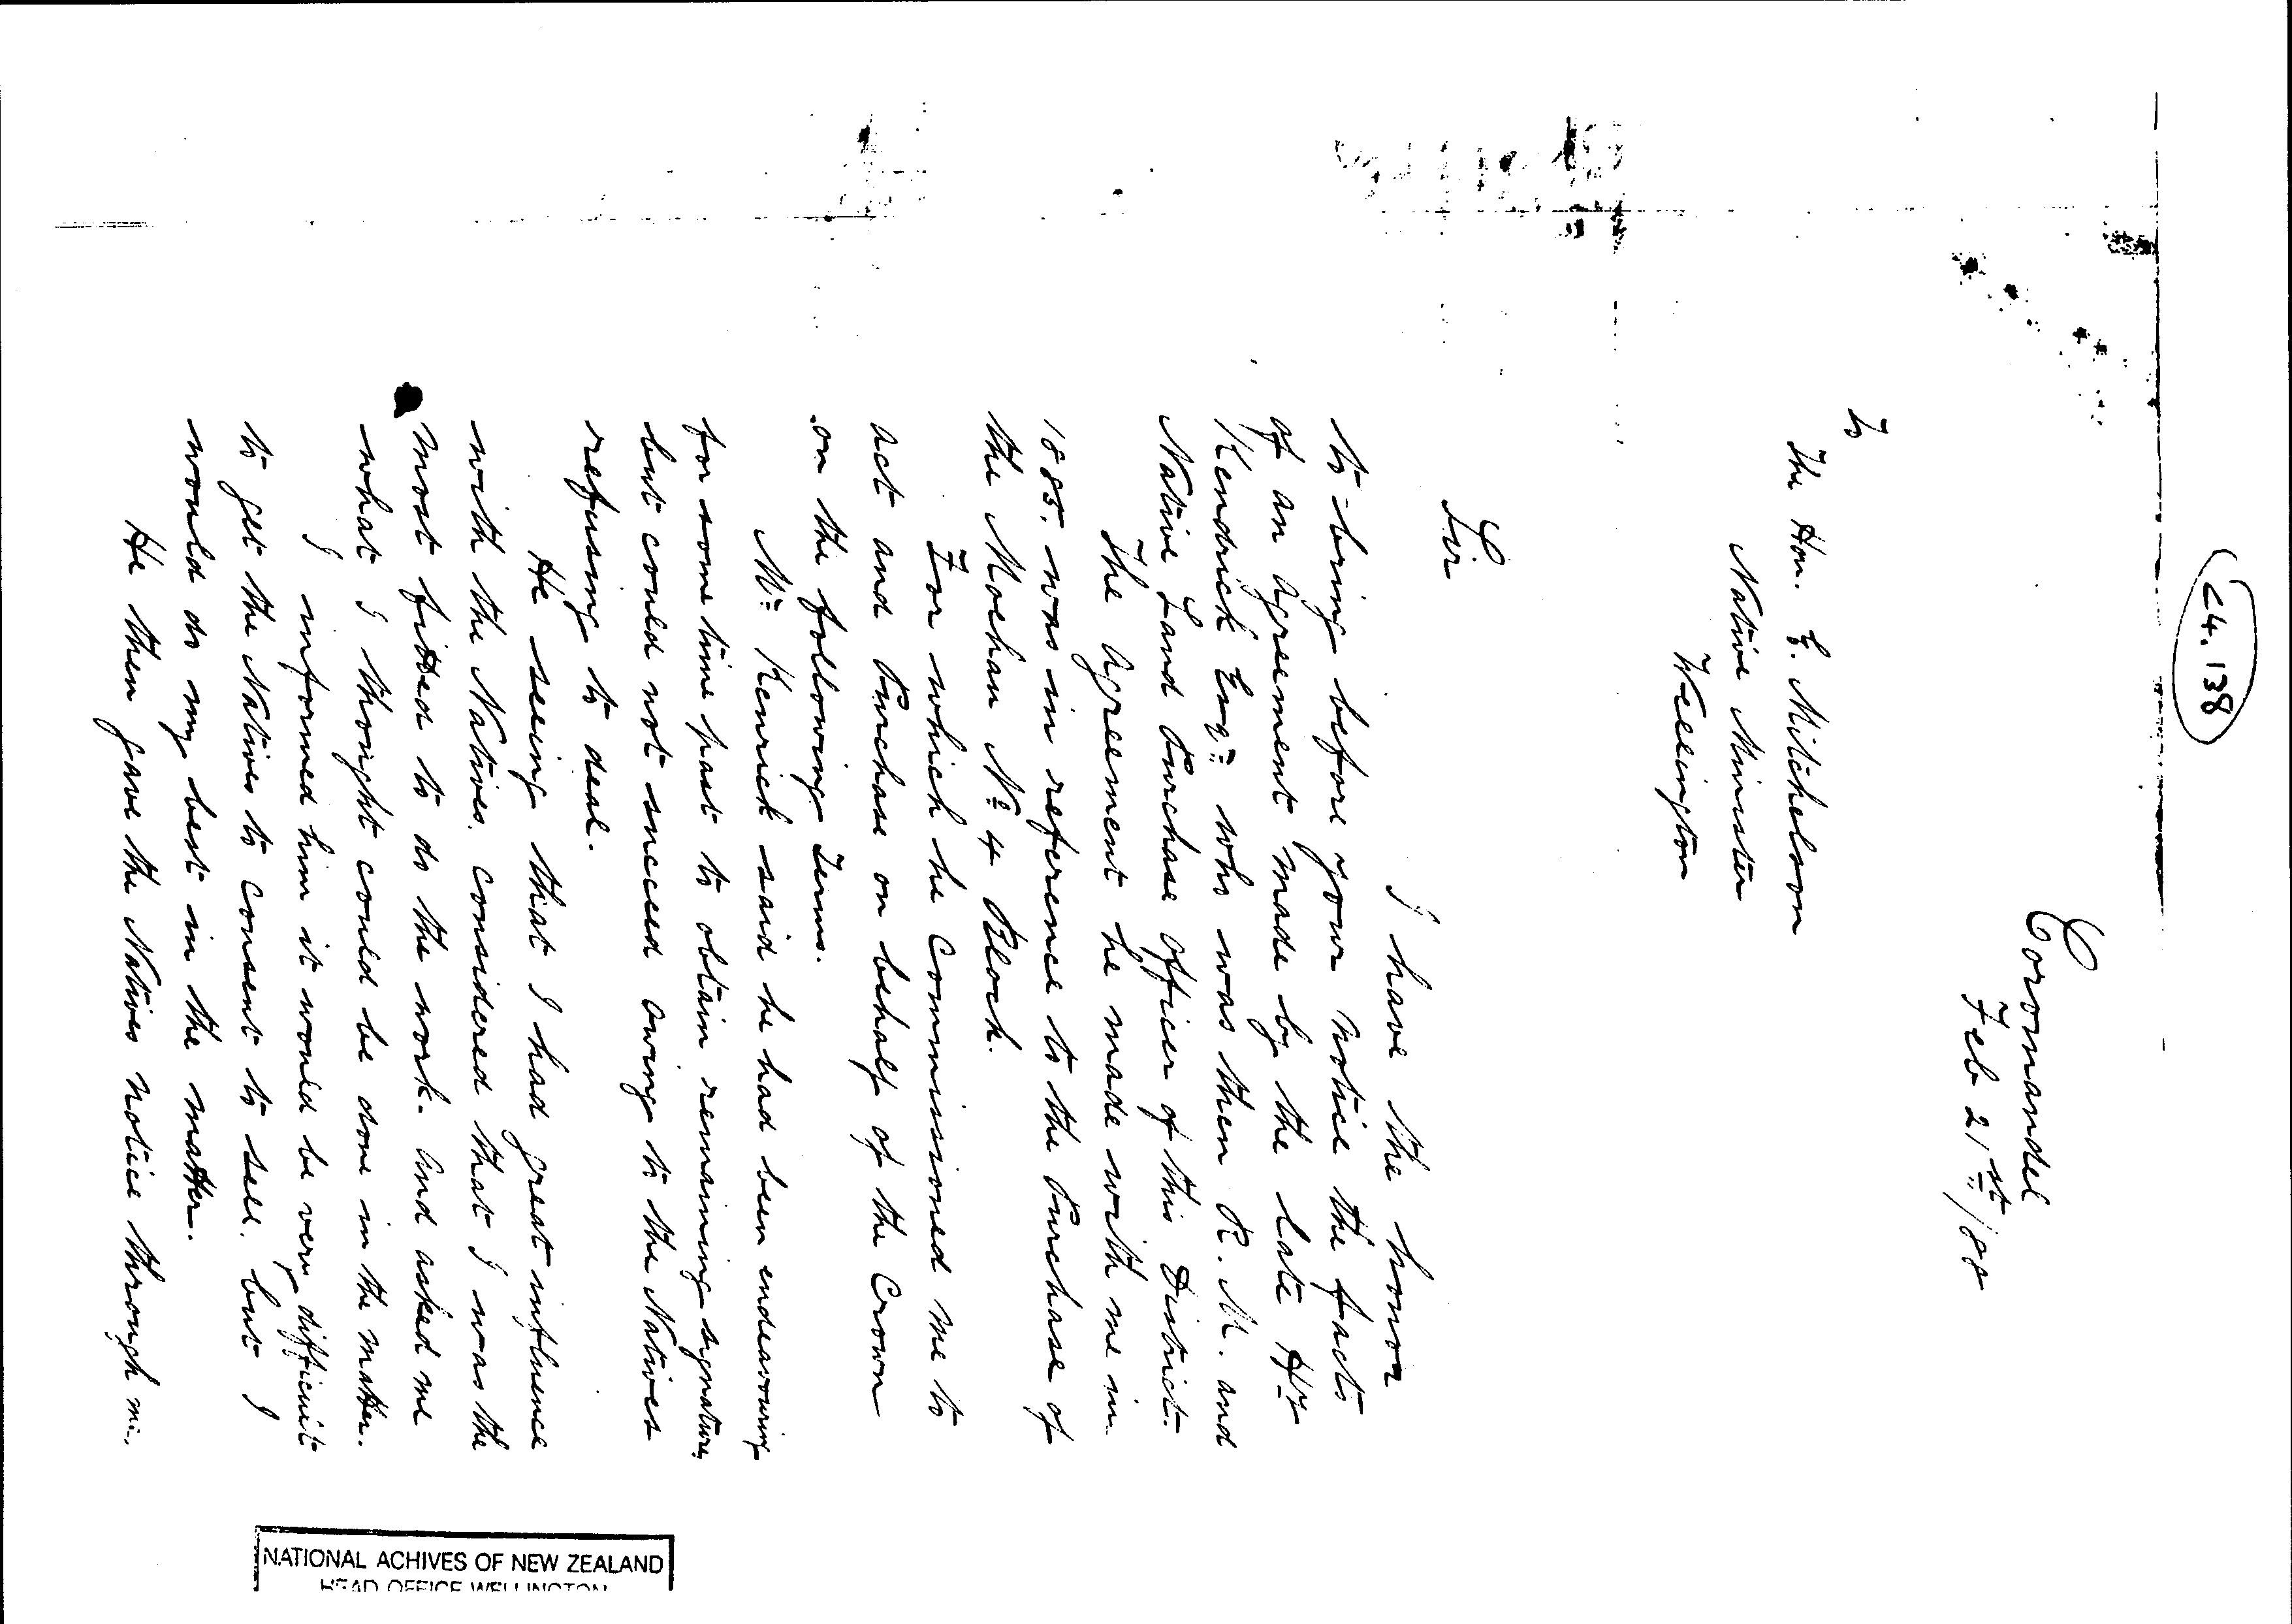 24.138
Coromandel
Feb 21st/88
To
The Hon. E. Mitchelson
Native Minister
Wellington
Sir
I have the honor
to bring before your notice the facts
of an agreement made by the late Hy
Kendrick Esqr who was then R.M. and
Native Land Purchase officer of this District.
The agreement he made with me in
1885. was in reference to the Purchase of
the Moehau No 4 Block.
For which he Commissioned me to
act and Purchase on behalf of the Crown
on the following Terms.
Mr Kenrick said he had been endeavouring
for some time past to obtain remaining signatures
but could not succeed owing to the Natives
refusing to deal.
He seeing that I had great influence
with the Natives. considered that I was the
most fitted to do the work. and asked me
what I thought could be done in the matter.
I informed him it would be very difficult
to get the Natives to consent to sell. but I
would do my best in the matter.
He then gave the Natives notice through me.
NATIONAL ACHIVES OF NEW ZEALAND
HEAD OFFICE WELLINGTON